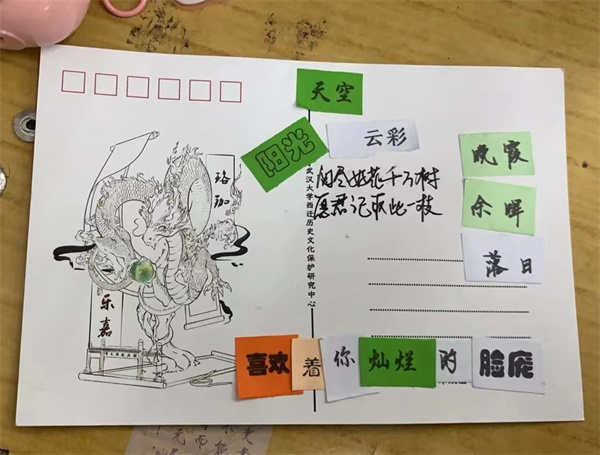 天空
阳光
云彩
晚霞
阅尽好花千万树
愿君记取此一枝
余晖
落日
珞珈
乐嘉
武汉大学西迁历史文化保护研究中心
喜欢着你灿烂的脸庞